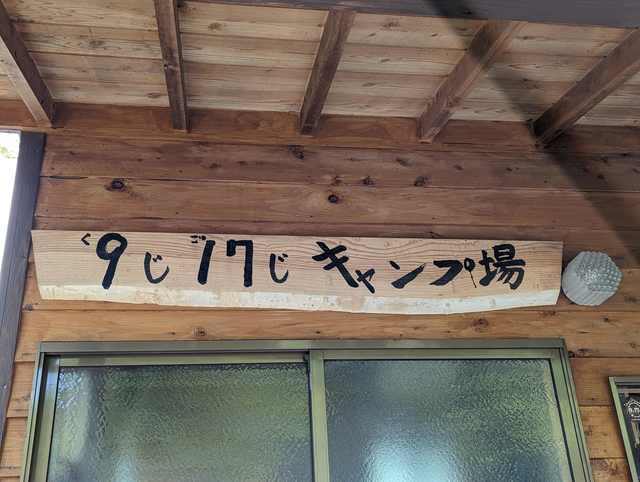 く9じ ご17じ キャンプ場